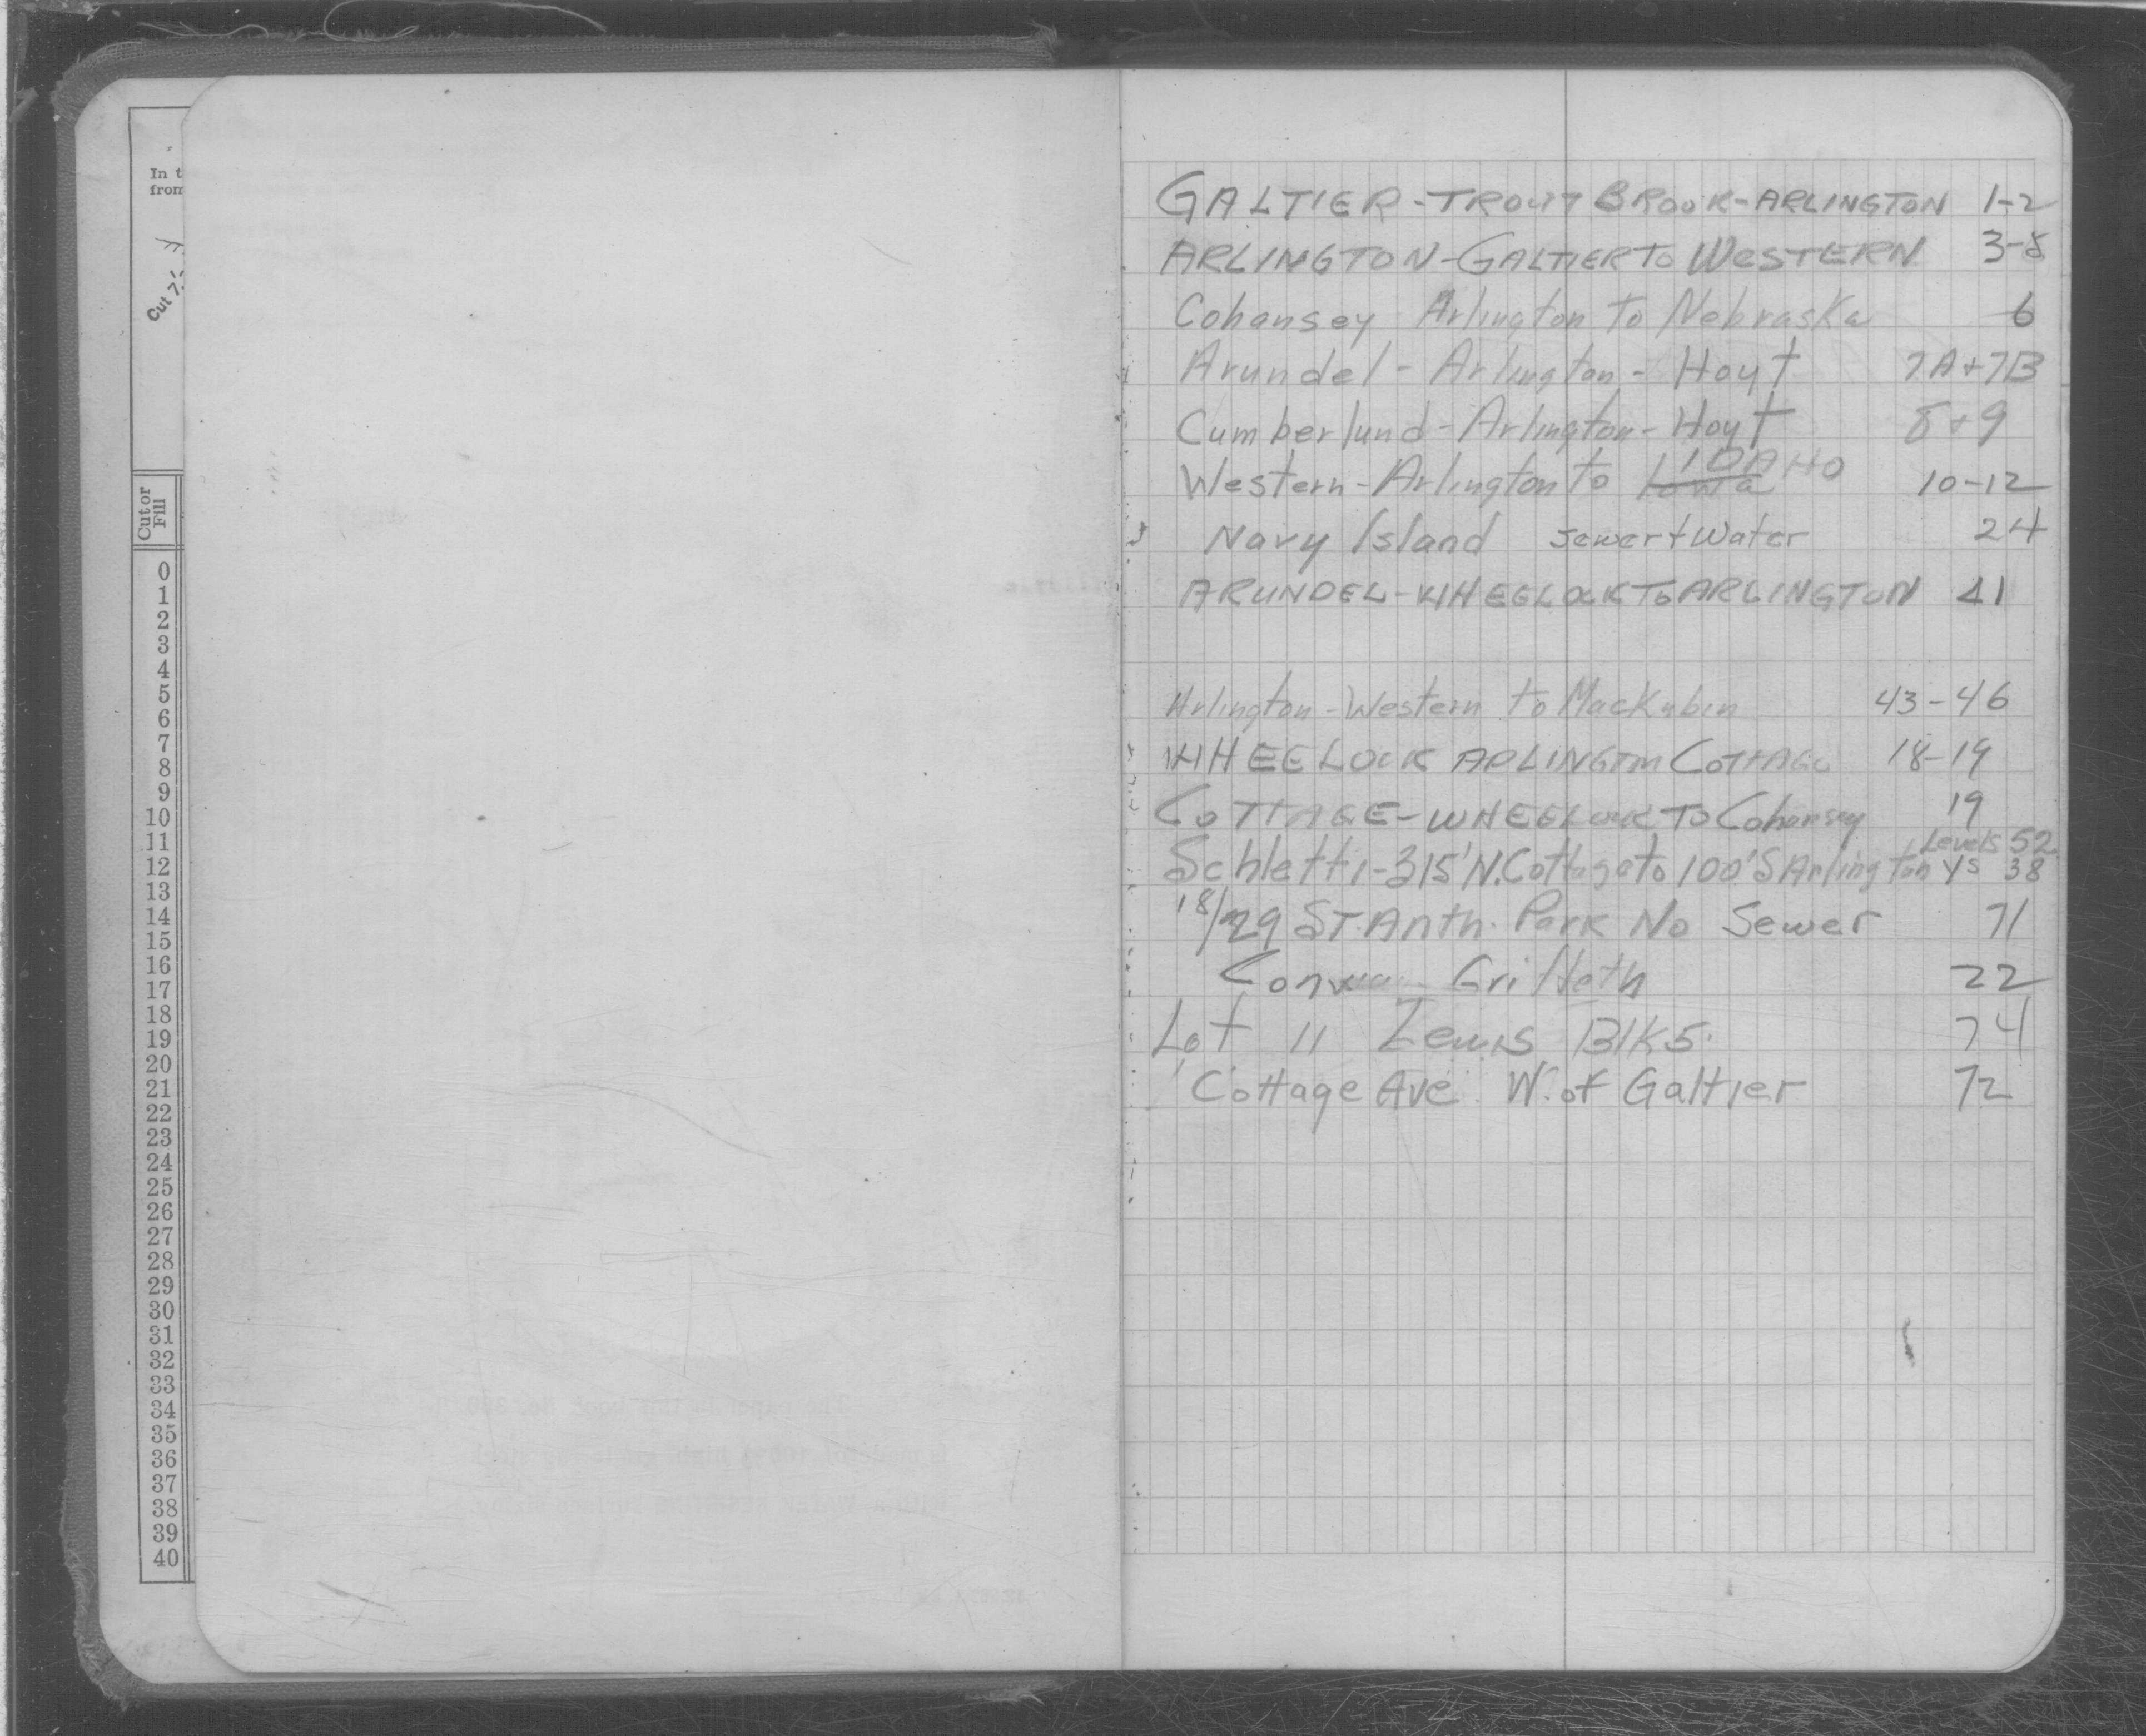 In t
from
Cut
Cut or
Fill
0
1
2
3
4
5
6
7
8
9
10
11
12
13
14
15
16
17
18
19
20
21
22
23
24
25
26
27
28
29
30
31
32
33
34
35
36
37
38
39
40
GALTIER-TROUT BROOK-ARLINGTON 1-2
ARLINGTON-GALTIER TO WESTERN 3-5
Cohansey Arlington To Nebraska 6
Arundel-Arlington-Hoyt 7A+7B
Cumberlund-Arlington-Hoyt 8+9
Western-Arlington to Iowa IDAHO 10-12
Navy Island sewer+Water 24
ARUNDEL-WHEELOCK TO ARLINGTON 41
Arlington-Western to Mackubin 43-46
WHEELOCK ARLINGTON COTTAGE 18-19
COTTAGE-WHEELOCK TO Cohansey 19
Levels 52
Schletti-315'N.Cottage to 100'S Arlington 38
18/29 ST. Anth. Park No Sewer 71
Griffeth 22
Lot 11 Lewis Blk 5. 74
Cottage Ave. W. of Galtier 72